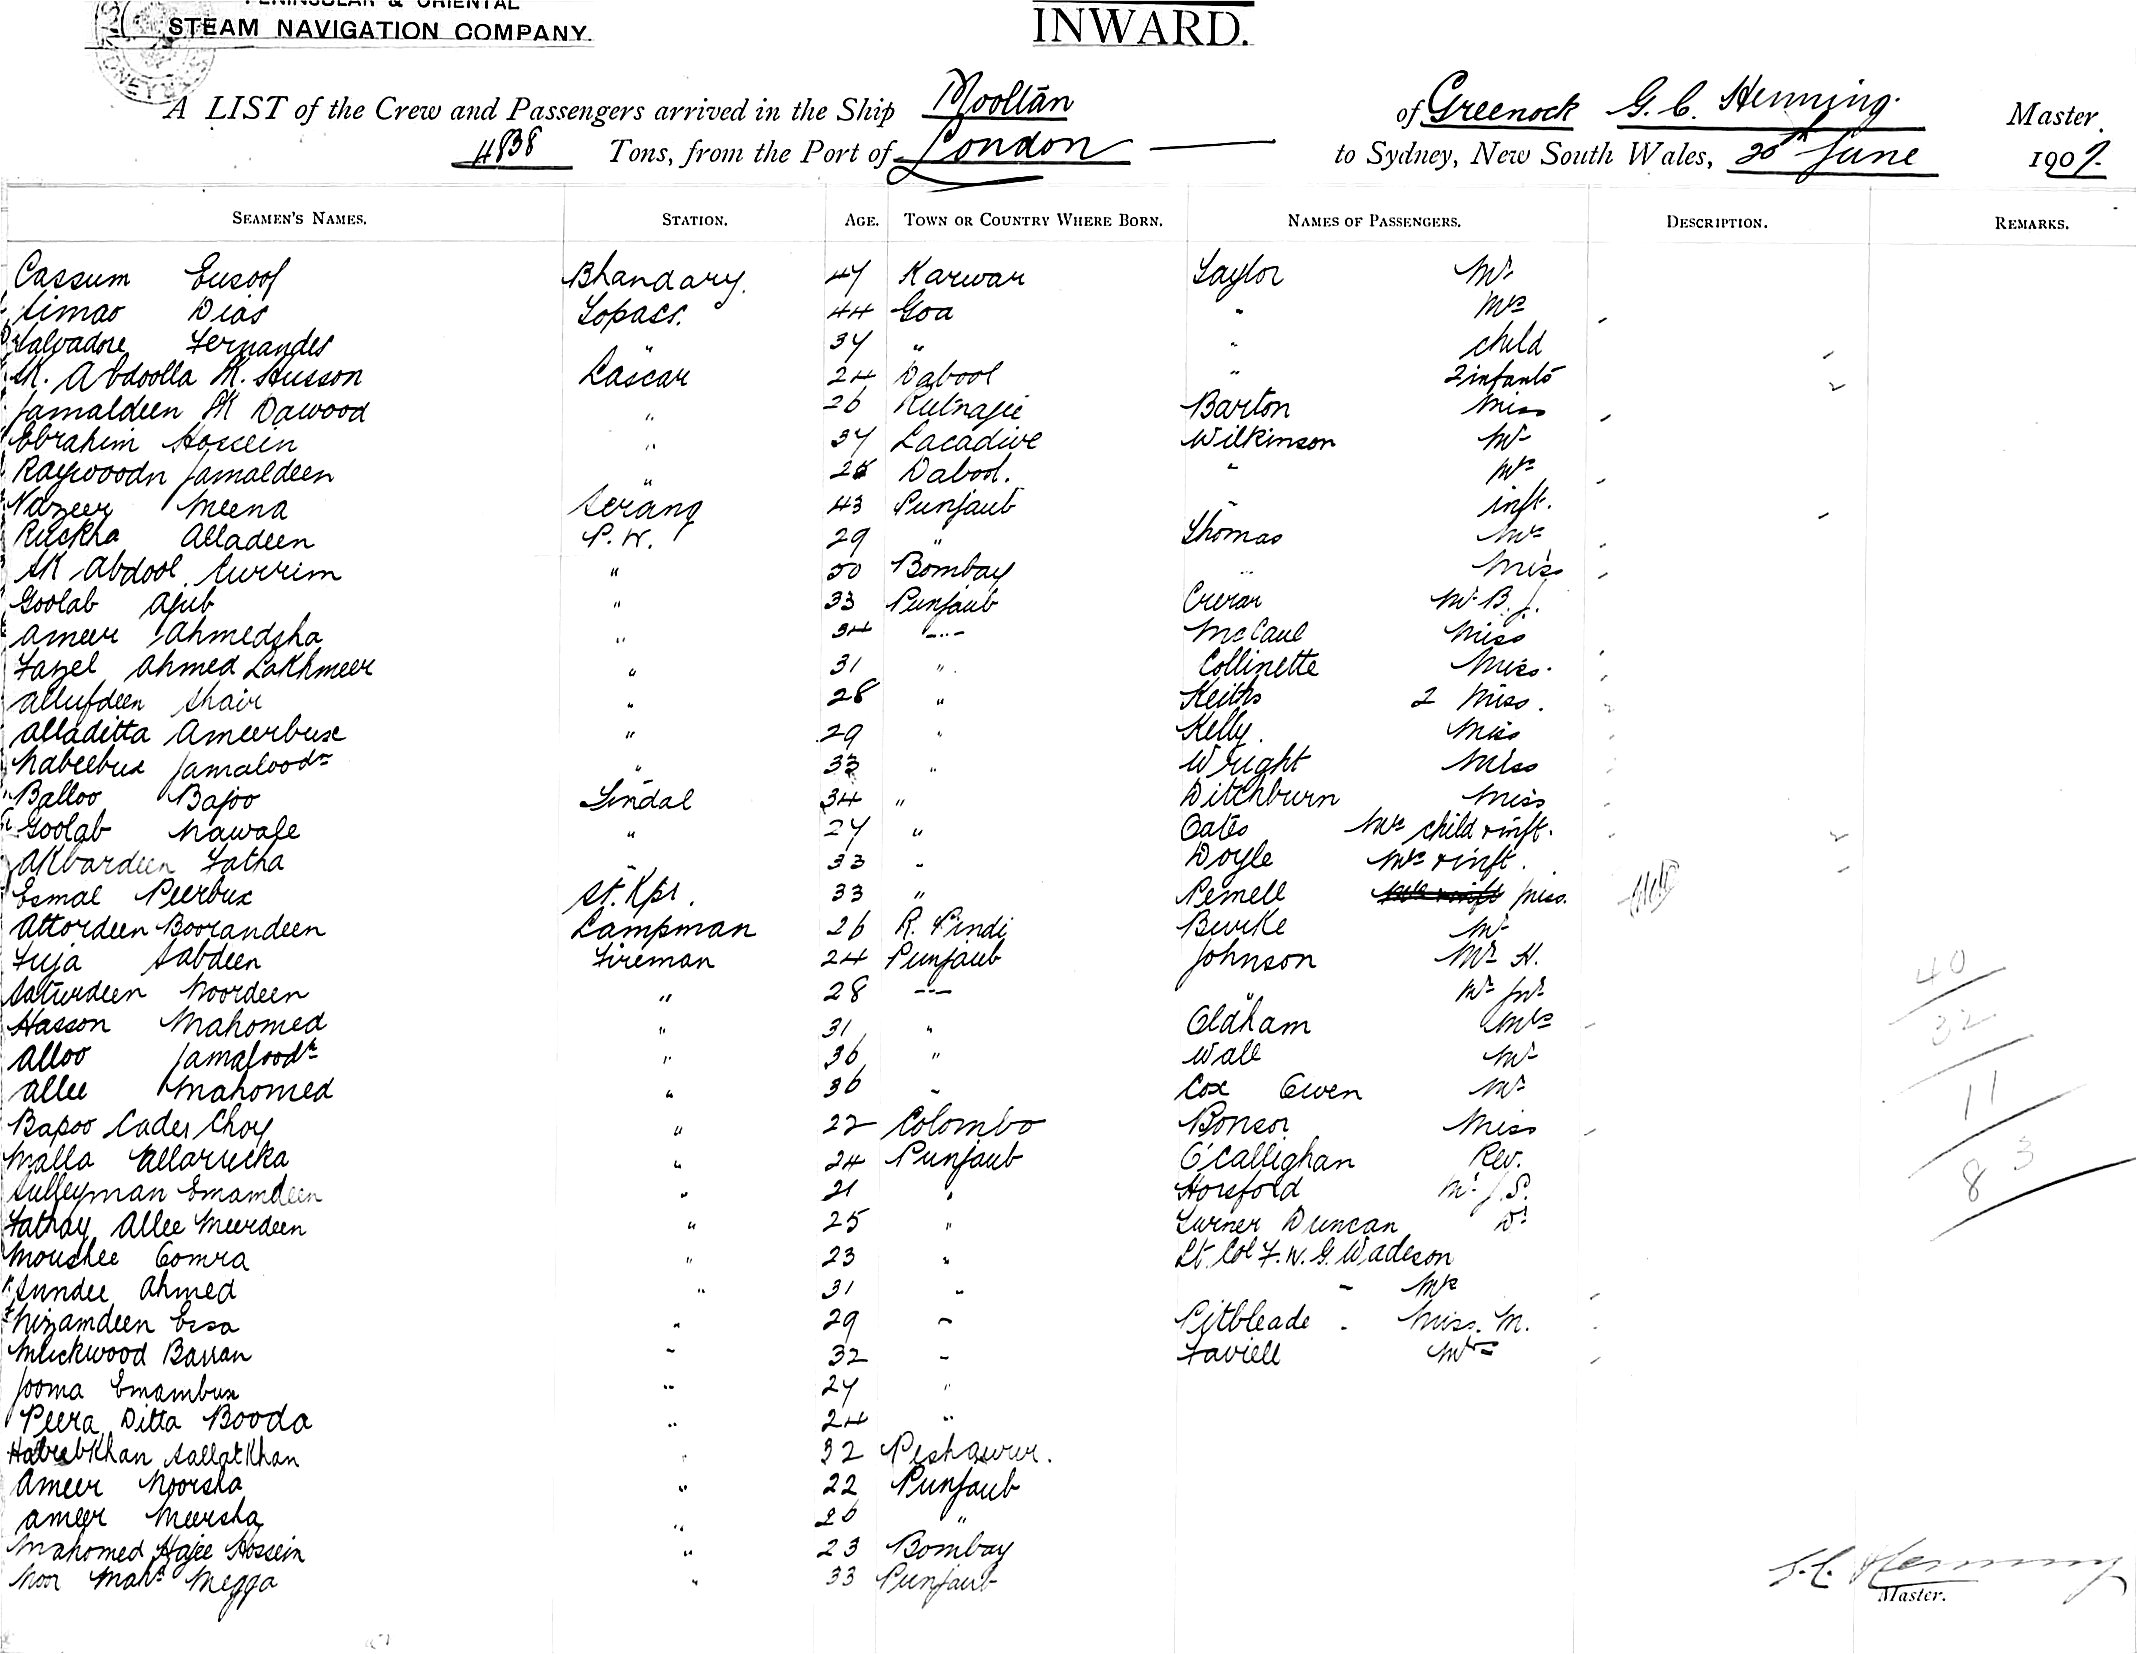 PENINSULAR & ORIENTAL
STEAM NAVIGATION COMPANY.
INWARD.
A LIST of the Crew and Passengers arrived in the Ship Mooltan of Greenock G. C. Henning Master.
4838 Tons, from the Port of London to Sydney, New South Wales, 20th June 1907.
SEAMEN'S NAMES. STATION. AGE. TOWN OR COUNTRY WHERE BORN. NAMES OF PASSENGERS. DESCRIPTION. REMARKS.
Cassum Eusoof Bhandary. 47 Karwar Taylor Mr
Simao Dias Topass. 44 Goa " Mrs
Salvadore Fernandes " 37 " " child
SK. Abdoolla M. Husson Lascar 24 Dabool " 2 infants
Jamaldeen SK Dawood " 26 Barton Miss
Ebrahim Hossein " 37 Lacadive Wilkinson Mr
Jamaldeen " Dabool. " Mrs
Nazeer Meena Serang 43 Punjaub " inft.
Ruckha Alladeen P. W. 29 " Thomas Mrs
SK Abdool Currim " 50 Bombay " Miss
Goolab Ajub " 33 Punjaub Crerar Mr B. J.
Ameer Ahmedsha " 34 -"- McCaul Miss
Fazel Ahmed Lakhmeer " 31 " Collinette Miss.
Allufdeen Shair " 28 " Keiths 2 Miss.
Alladitta Ameerbux " 29 " Kelly. Miss
Nabeebux Jamaloodn " 33 " Wright Miss
Balloo Bajoo Tindal 34 " Ditchburn Miss
Goolab Nawale " 27 " Oates Mrs child & inft.
Akbardeen Fatha " 33 " Doyle Mrs & inft.
Esmal Peerbux St. Kpr. 33 " Pemell Miss.
Attordeen Boorandeen Lampman 26 R. Pindi Burke Mr
Fuja Sabdeen Fireman 24 Punjaub Johnson Mr H.
Saturdeen Noordeen " 28 -"- " Mr Jnr
Hasson Mahomed " 31 " Oldham Mrs
Alloo Jamaloodn " 36 " Wall Mr
Allee Mahomed " 36 " Cox Owen Mr
Bapoo Cader Choy " 22 Colombo Bonsor Miss
Malla Ellarucka " 24 Punjaub O'Callighan Rev.
Sulleyman Emamdeen " 21 " Horsford Mr J. S.
Fathay Allee Meerdeen " 25 " Turner Duncan Dr
Moushee Gomra " 23 " Lt. Col F. W. G. Wadeson
Sundee Ahmed " 31 " " Mrs
Nizamdeen Essa " 29 " Pitbleade - Miss. M.
Muckwood Barran " 32 " Faviell Mrs
Jooma Emambux " 27 "
Peera Ditta Booda " 24 "
Habeebkhan Sallatkhan " 32 Peshawur.
Ameer Noorsha " 22 Punjaub
Ameer Meersha " 26 "
Mahomed Hajee Hossein " 23 Bombay
Noor Mahd Megga " 33 Punjaub
40
32
11
83
G. C. Henning
Master.